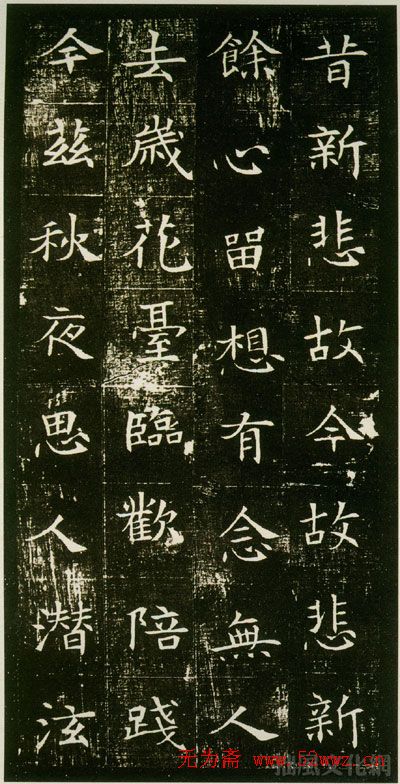 昔新悲故今故悲新
餘心留想有念無人
去歲花臺臨歡陪踐
今茲秋夜思人潜泫
无为斋 www.59wwz.cn